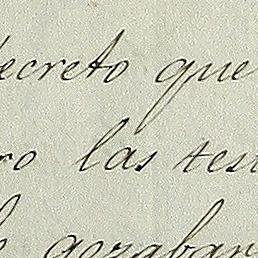 decreto que
ro las test
gozabar